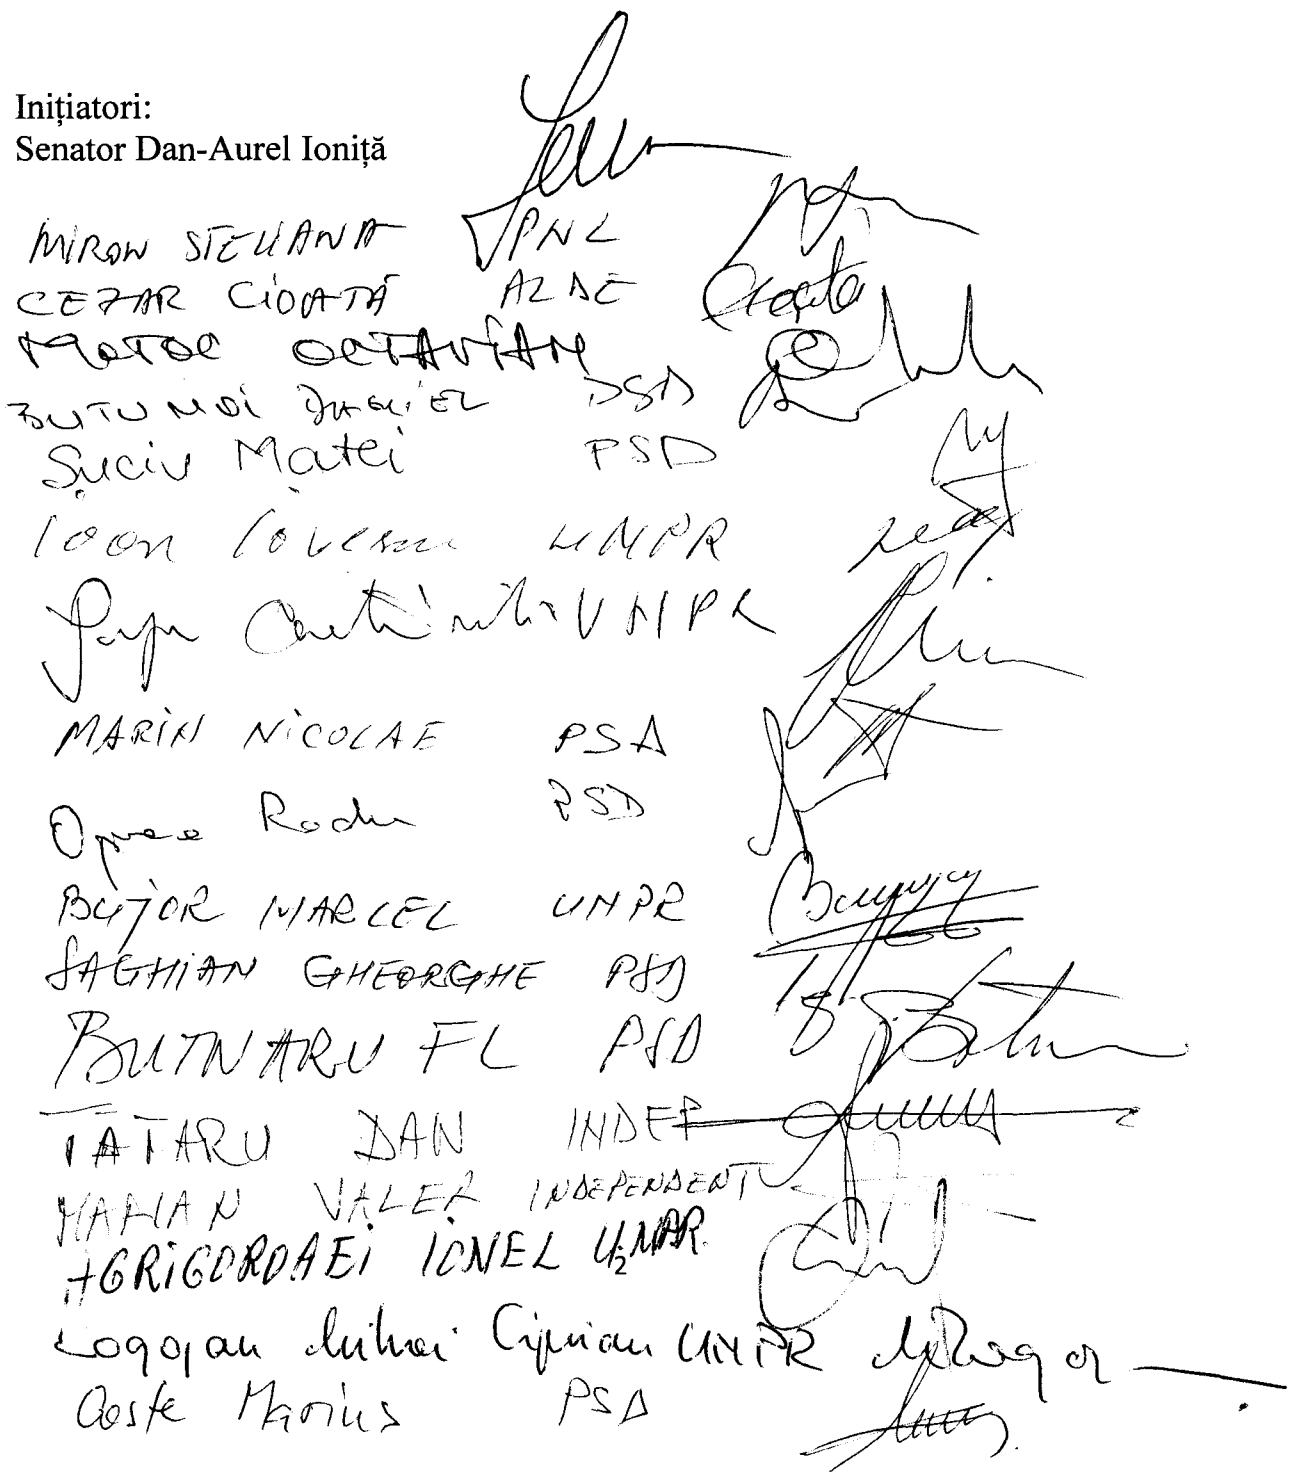 Inițiatori:
Senator Dan-Aurel Ioniță
MIRON STELIANA PNL
CEZAR CIOATĂ ALDE
MOTOC OCTAVIAN
BUTUNOI DANIEL PSD
Suciu Matei PSD
Ioan Iovescu UNPR
UNPR
MARIN NICOLAE PSD
Oprea Radu PSD
BUJOR MARCEL UNPR
SAGHIAN GHEORGHE PSD
BUTNARU FL PSD
TATARU DAN INDEP
MARIAN VALER INDEPENDENT
AGRIGOROAEI IONEL UNPR.
Gogojan Mihai Ciprian UNPR
Coste Marius PSD